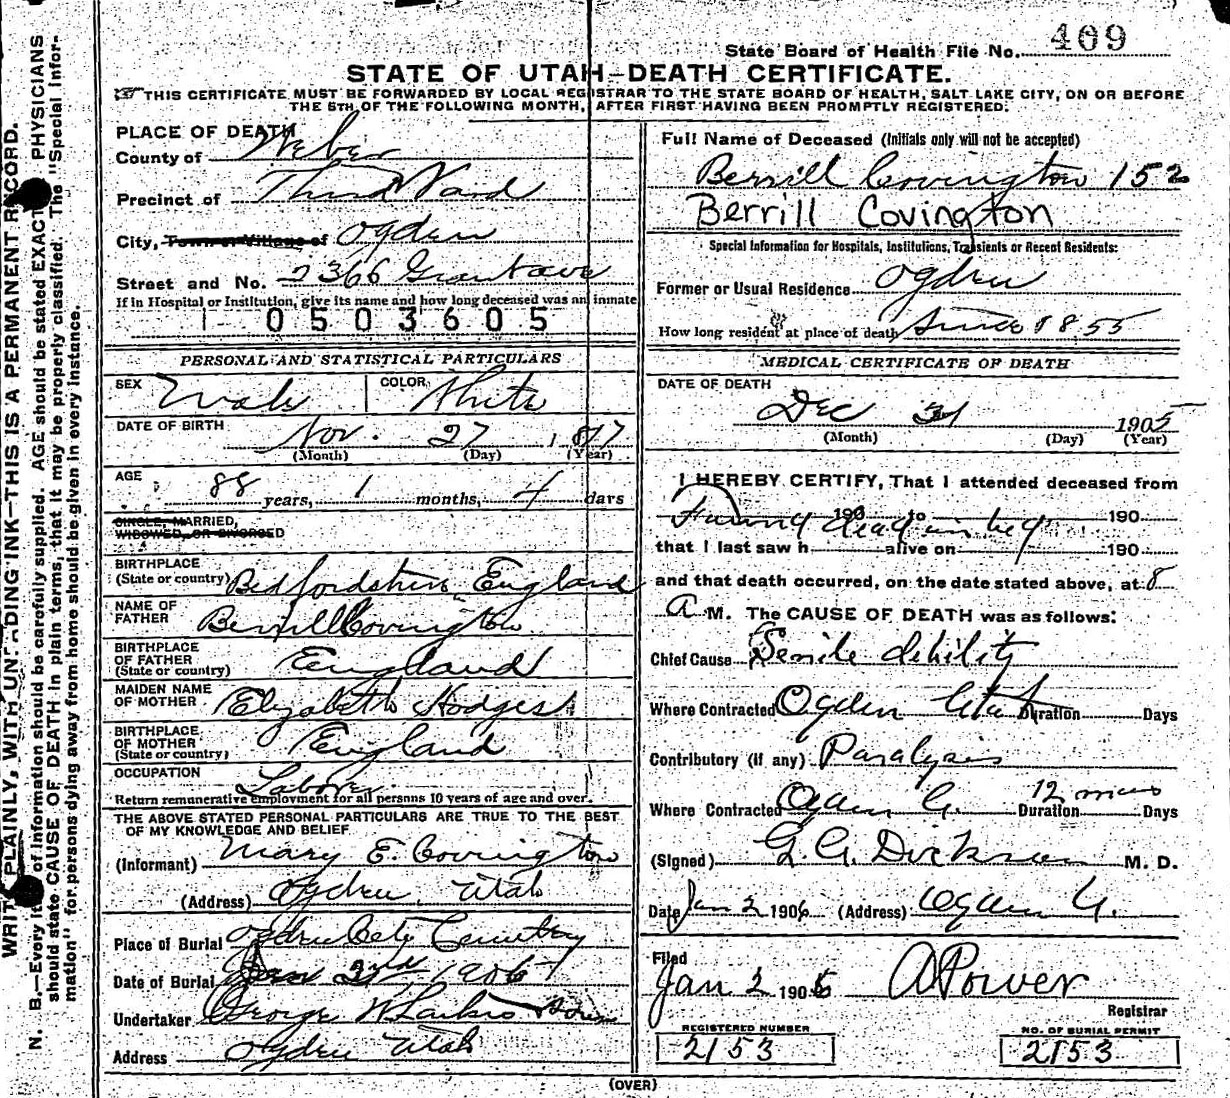 State Board of Health File No. 409
STATE OF UTAH-DEATH CERTIFICATE.
THIS CERTIFICATE MUST BE FORWARDED BY LOCAL REGISTRAR TO THE STATE BOARD OF HEALTH, SALT LAKE CITY, ON OR BEFORE
THE 5TH OF THE FOLLOWING MONTH, AFTER FIRST HAVING BEEN PROMPTLY REGISTERED.
WRITE PLAINLY, WITH UNFADING INK—THIS IS A PERMANENT RECORD.
N. B.—Every item of Information should be carefully supplied. AGE should be stated EXACTLY. PHYSICIANS
should state CAUSE OF DEATH in plain terms, that it may be properly classified. The "Special Infor-
mation" for persons dying away from home should be given in every instance.
PLACE OF DEATH
County of Weber
Precinct of Third Ward
City, Town or Village of Ogden
Street and No. 2366 Grant ave
If in Hospital or Institution, give its name and how long deceased was an inmate
0503605
PERSONAL AND STATISTICAL PARTICULARS
SEX Male COLOR White
DATE OF BIRTH Nov. 27, 1817
(Month) (Day) (Year)
AGE 88 years, 1 months, 4 days
SINGLE, MARRIED,
WIDOWED, OR DIVORCED
BIRTHPLACE
(State or country) Bedfordshire England
NAME OF
FATHER Berrill Covington
BIRTHPLACE
OF FATHER
(State or country) England
MAIDEN NAME
OF MOTHER Elizabeth Hodges
BIRTHPLACE
OF MOTHER
(State or country) England
OCCUPATION Laborer
Return remunerative employment for all persons 10 years of age and over.
THE ABOVE STATED PERSONAL PARTICULARS ARE TRUE TO THE BEST
OF MY KNOWLEDGE AND BELIEF
(Informant) Mary E. Covington
(Address) Ogden, Utah
Place of Burial Ogden City Cemetery
Date of Burial Jan 2nd 1906
Undertaker George W Larkin Sons
Address Ogden Utah
Full Name of Deceased (Initials only will not be accepted)
Berrill Covington 152
Berrill Covington
Special Information for Hospitals, Institutions, Transients or Recent Residents:
Former or Usual Residence Ogden
How long resident at place of death Since 1855
MEDICAL CERTIFICATE OF DEATH
DATE OF DEATH
Dec 31 1905
(Month) (Day) (Year)
I HEREBY CERTIFY, That I attended deceased from
Found dead in bed 190 to 190
that I last saw h alive on 190
and that death occurred, on the date stated above, at 8
A M. The CAUSE OF DEATH was as follows:
Chief Cause Senile debility
Where Contracted Ogden Utah Duration Days
Contributory (if any) Paralysis
Where Contracted Ogden U. Duration 12 mos Days
(Signed) G. A. Dickson M. D.
Date Jan 2 1906 (Address) Ogden U.
Filed
Jan 2 1906 A Power
Registrar
REGISTERED NUMBER
2153
NO. OF BURIAL PERMIT
2153
(OVER)